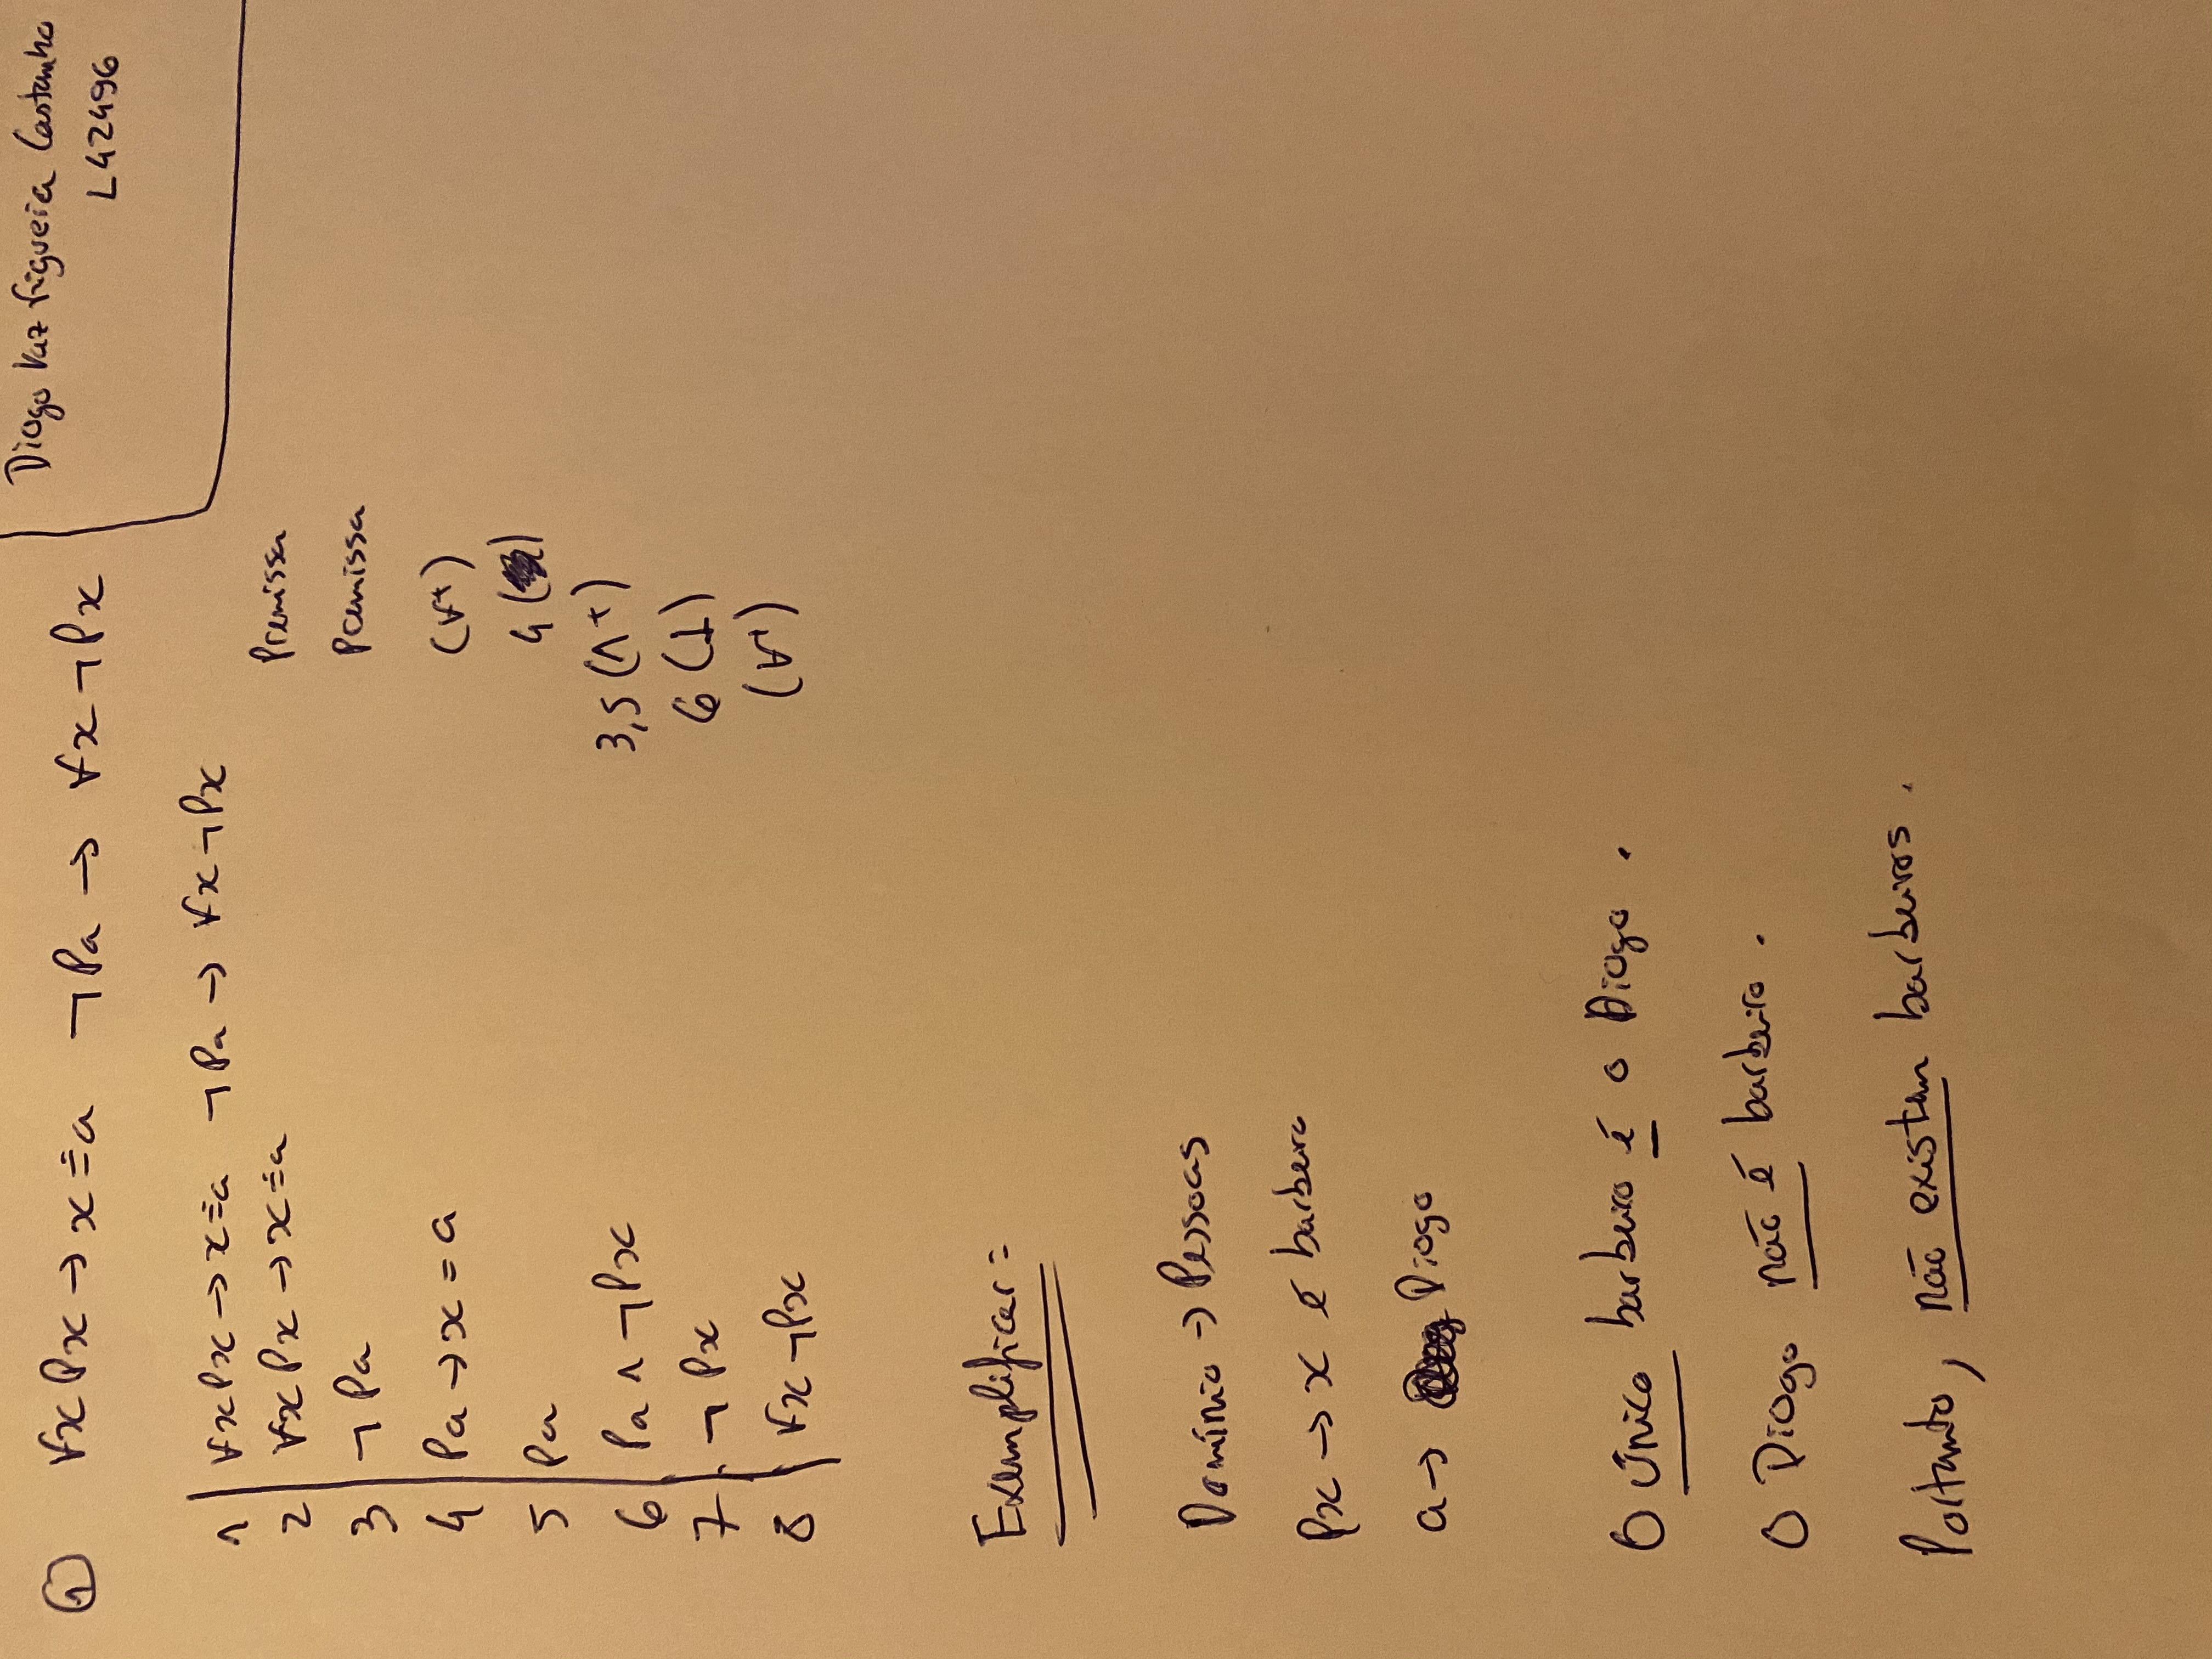 ① ∀x Px → x ≐ a ¬Pa → ∀x ¬Px
Diogo Vaz Figueia Castanho
L42496
1 ∀x Px → x ≐ a ¬Pa → ∀x ¬Px
2 ∀x Px → x ≐ a Premissa
3 ¬Pa Premissa
4 Pa → x = a (∀+)
5 Pa 4 ( )
6 Pa ∧ ¬Px 3,5 (∧+)
7 ¬Px 6 (⊥)
8 ∀x ¬Px (∀+)
Exemplificar =
Domínio → Pessoas
Px → x é barbeiro
a → Diogo
O único barbeiro é o Diogo .
O Diogo não é barbeiro .
Portanto, não existem barbeiros .